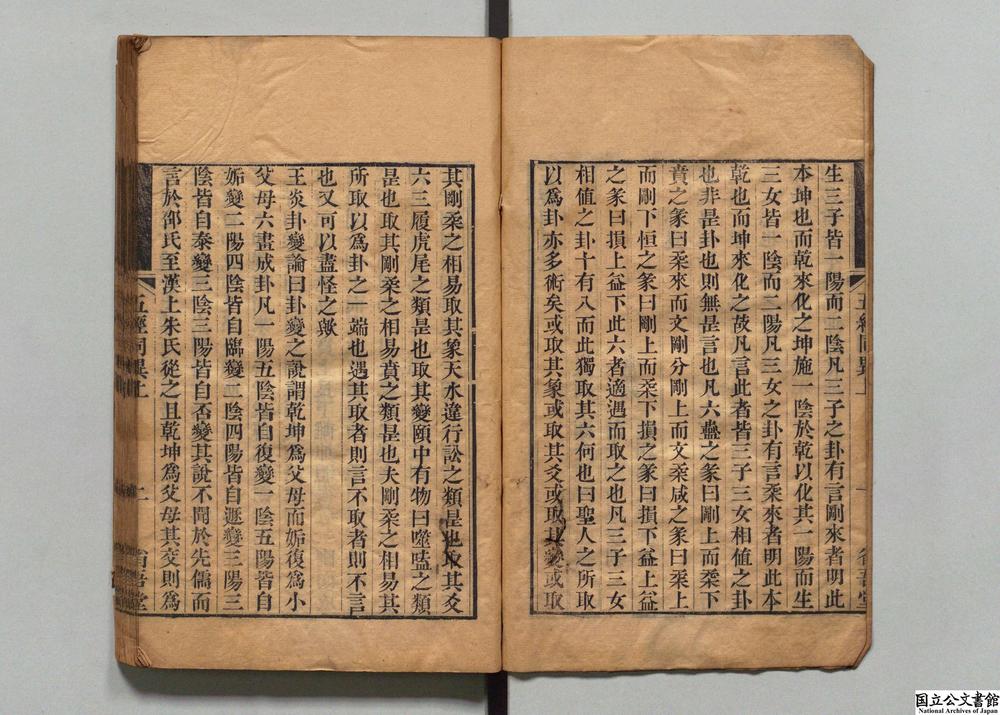 生三子皆一陽而二陰凡三子之卦有言剛來者明此
本坤也而乾來化之坤施一陰於乾以化其一陽而生
三女皆一陰而二陽凡三女之卦有言柔來者明此本
乾也而坤來化之故凡言此者皆三子三女相值之卦
也非是卦也則無是言也凡六蠱之彖曰剛上而柔下
賁之彖曰柔來而文剛分剛上而文柔咸之彖曰柔上
而剛下恒之彖曰剛上而柔下損之彖曰損下益上益
之彖曰損上益下此六者適遇而取之也凡三子三女
相值之卦十有八而此獨取其六何也曰聖人之所取
以爲卦亦多術矣或取其象或取其爻或取其變或取
其剛柔之相易取其象天水違行訟之類是也取其爻
六三履虎尾之類是也取其變頤中有物曰噬嗑之類
是也取其剛柔之相易賁之類是也夫剛柔之相易其
所取以爲卦之一端也遇其取者則言不取者則不言
也又可以盡怪之歟
王炎卦變論曰卦變之說謂乾坤爲父母而姤復爲小
父母六畫成卦凡一陽五陰皆自復變一陰五陽皆自
姤變二陽四陰皆自臨變二陰四陽皆自遯變三陽三
陰皆自泰變三陰三陽皆自否變其說不聞於先儒而
言於邵氏至漢上朱氏從之且乾坤爲父母其交則爲
五經同異上
二
省吾堂
国立公文書館
National Archives of Japan